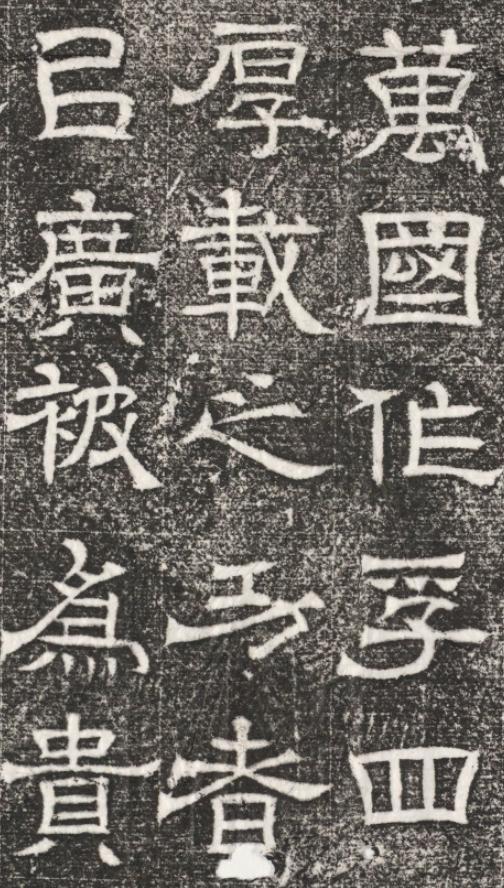 萬國作孚四
厚載之功者
㠯廣被為貴